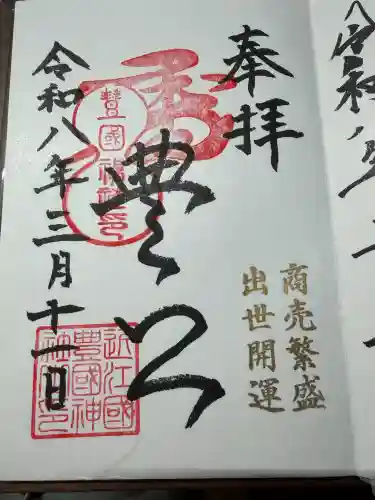 奉拝
商売繁盛
出世開運
豊公
令和八年三月十一日
豊國神社印
近江國
豊國神
社之印